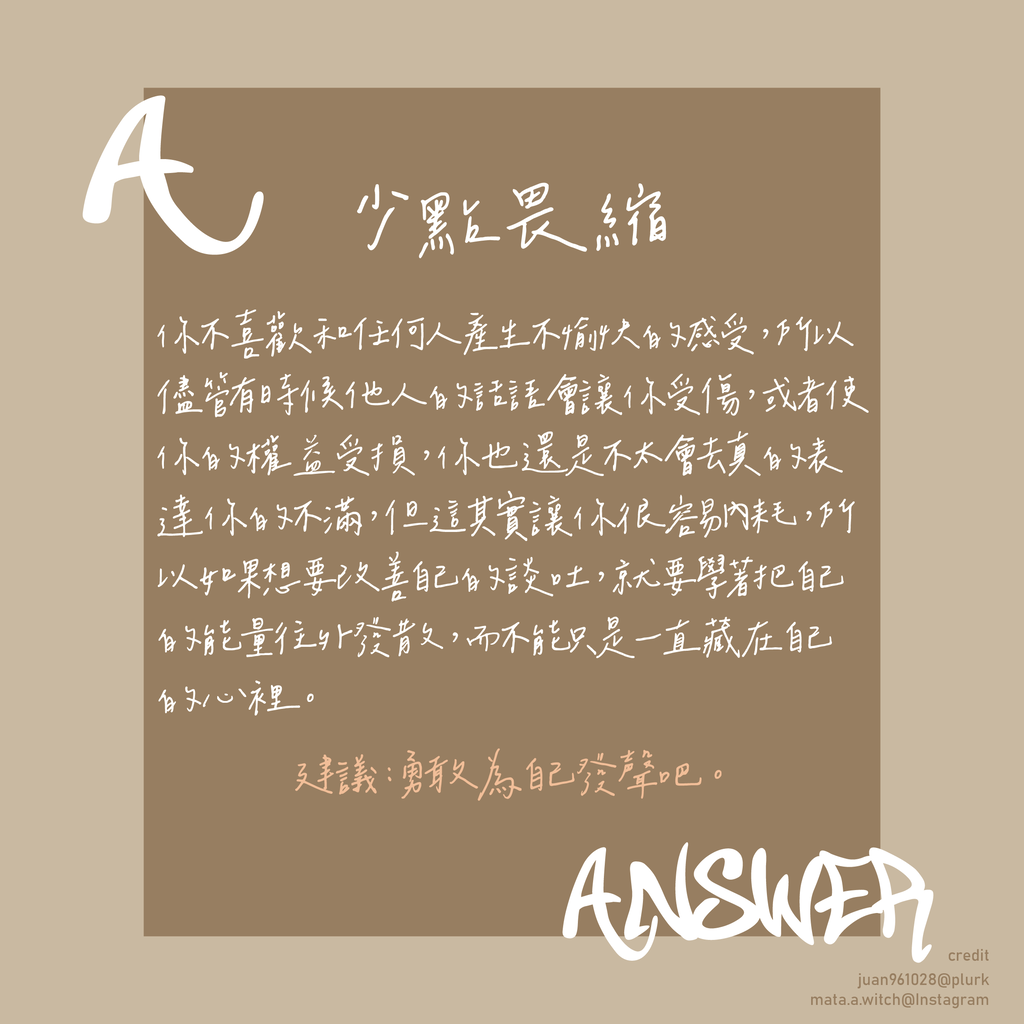 A
少點畏縮
你不喜歡和任何人產生不愉快的感受，所以
儘管有時候他人的話語會讓你受傷，或者使
你的權益受損，你也還是不太會去真的表
達你的不滿，但這其實讓你很容易內耗，所
以如果想要改善自己的談吐，就要學著把自己
的能量往外發散，而不能只是一直藏在自己
的心裡。
建議：勇敢為自己發聲吧。
ANSWER
credit
juan961028@plurk
mata.a.witch@Instagram